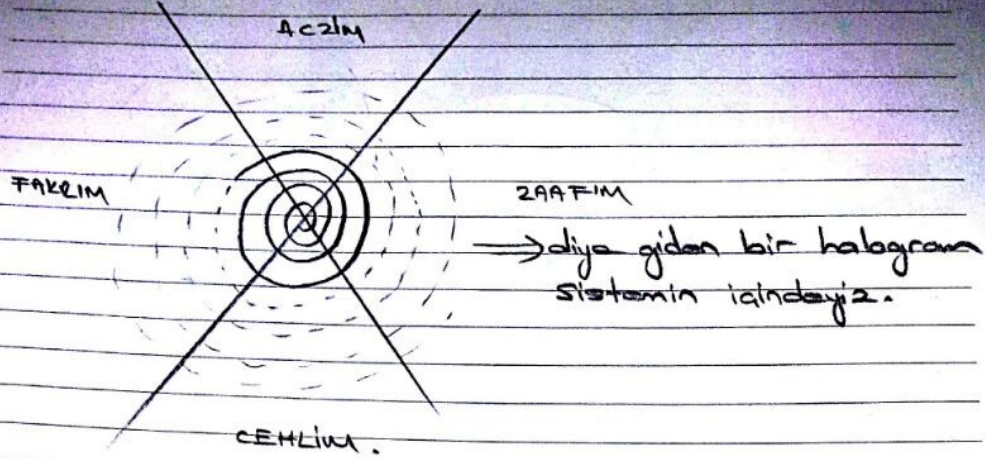 ACZİM
FAKRIM
ZAAFIM
→ diye giden bir halogram
sistemin içindeyiz.
CEHLİM.